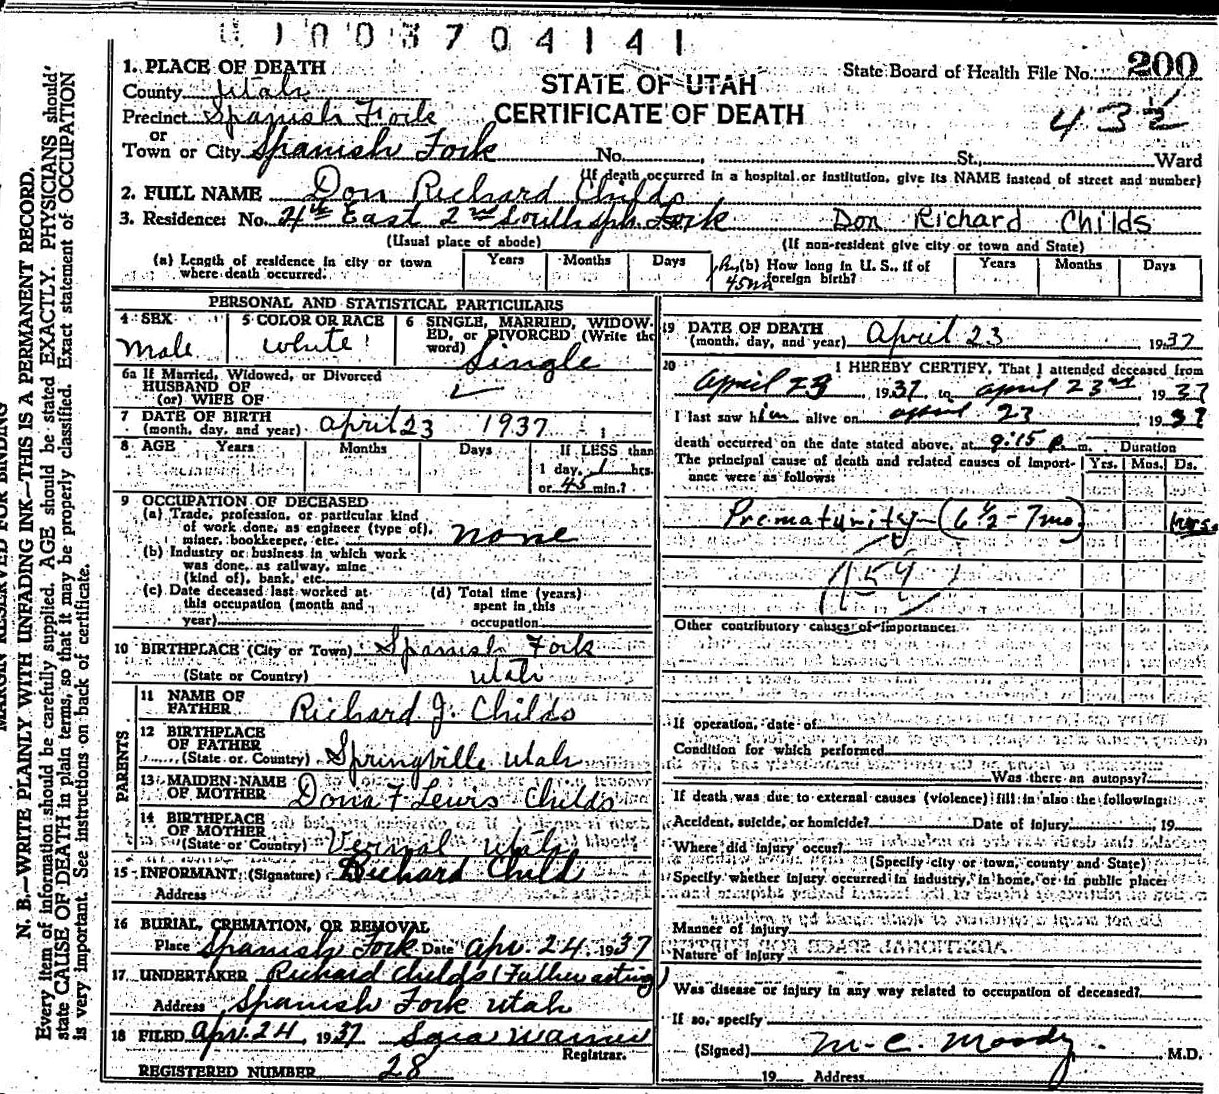 1003704141
1. PLACE OF DEATH
STATE OF UTAH
CERTIFICATE OF DEATH
State Board of Health File No. 200
432
County Utah
Precinct Spanish Fork
or
Town or City Spanish Fork No. , St., Ward
(If death occurred in a hospital or institution, give its NAME instead of street and number)
2. FULL NAME Don Richard Childs
3. Residence: No. 4th East 2nd South Sp. Fork Don Richard Childs
(Usual place of abode) (If non-resident give city or town and State)
(a) Length of residence in city or town where death occurred. Years Months Days
(b) How long in U. S., if of foreign birth? Years Months Days
45m
PERSONAL AND STATISTICAL PARTICULARS
4 SEX Male
5 COLOR OR RACE White
6 SINGLE, MARRIED, WIDOWED, or DIVORCED (Write the word) Single
6a If Married, Widowed, or Divorced
HUSBAND OF
(or) WIFE OF
7 DATE OF BIRTH
(month, day, and year) april 23 1937
8 AGE Years Months Days If LESS than
1 day, 1 hrs.
or 45 min.?
9 OCCUPATION OF DECEASED
(a) Trade, profession, or particular kind
of work done, as engineer (type of),
miner, bookkeeper, etc. none
(b) Industry or business in which work
was done, as railway, mine
(kind of), bank, etc.
(c) Date deceased last worked at
this occupation (month and
year)
(d) Total time (years)
spent in this
occupation
10 BIRTHPLACE (City or Town) Spanish Fork
(State or Country) Utah
PARENTS
11 NAME OF
FATHER Richard J. Childs
12 BIRTHPLACE
OF FATHER
(State or Country) Springville Utah
13 MAIDEN NAME
OF MOTHER Dona F Lewis Childs
14 BIRTHPLACE
OF MOTHER
(State or Country) Vernal Utah
15 INFORMANT (Signature) Richard Child
Address
16 BURIAL, CREMATION, OR REMOVAL
Place Spanish Fork Date Apr. 24 1937
17 UNDERTAKER Richard Childs (Father acting)
Address Spanish Fork Utah
18 FILED Apr. 24, 1937 Sara Warner
Registrar.
REGISTERED NUMBER 28
19 DATE OF DEATH
(month, day, and year) April 23 1937
20 I HEREBY CERTIFY, That I attended deceased from
April 23 1937 to april 23rd, 1937
I last saw him alive on april 23 1937
death occurred on the date stated above, at 9:15 p. m.
The principal cause of death and related causes of importance were as follows:
Duration
Yrs. Mos. Ds.
Prematurity - (6 1/2 - 7 mo) hrs
(159)
Other contributory causes of importance:
If operation, date of
Condition for which performed
Was there an autopsy?
If death was due to external causes (violence) fill in also the following:
Accident, suicide, or homicide? Date of injury , 19
Where did injury occur?
(Specify city or town, county and State)
Specify whether injury occurred in industry, in home, or in public place:
Manner of injury
Nature of injury
Was disease or injury in any way related to occupation of deceased?
If so, specify
(Signed) M. C. Moody. M.D.
19 Address
MARGIN RESERVED FOR BINDING
N. B.—WRITE PLAINLY WITH UNFADING INK—THIS IS A PERMANENT RECORD.
Every item of information should be carefully supplied. AGE should be stated EXACTLY. PHYSICIANS should
state CAUSE OF DEATH in plain terms, so that it may be properly classified. Exact statement of OCCUPATION
is very important. See instructions on back of certificate.